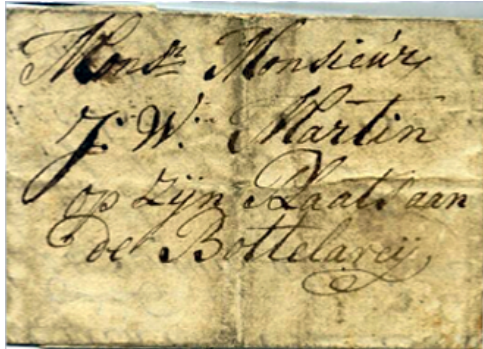 Monsr Monsieur
J: W: Martin
op zijn Plaats aan
de Bottelareij